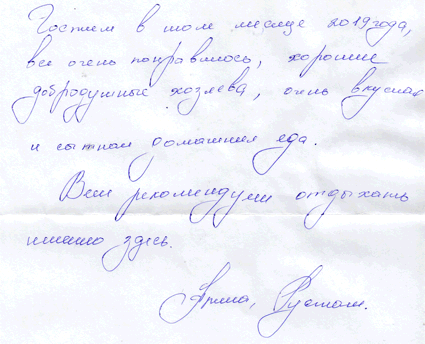 Гостим в июле месяце 2019 года,
все очень понравилось, хорошие
добродушные хозяева, очень вкусная
и сытная домашняя еда.
Всем рекомендуем отдыхать
именно здесь.
Арина, Рустам.